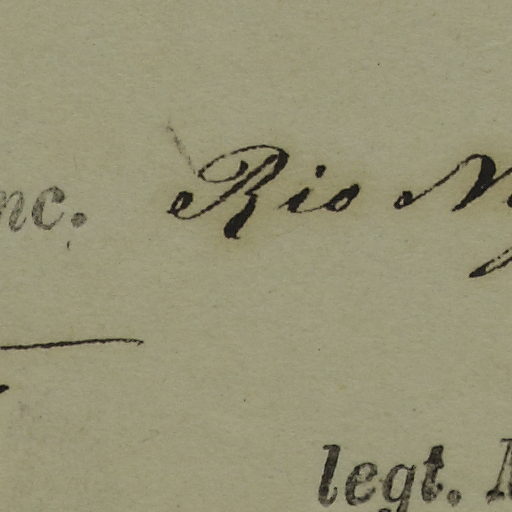 nc. Rio N
legt.